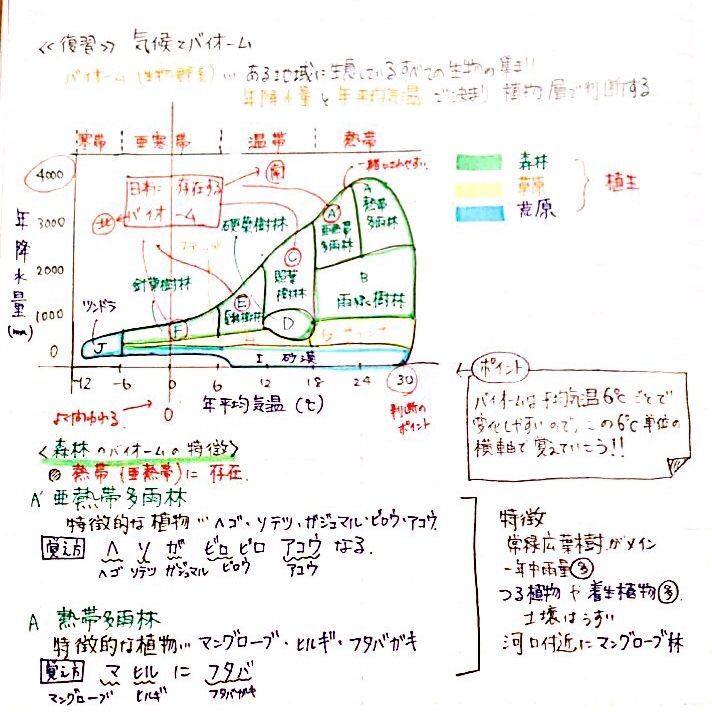 ≪復習≫ 気候とバイオーム
バイオーム(生物群系)… ある地域に生息しているすべての生物の集まり
年降水量と年平均気温で決まり 植物層で判断する
寒帯 亜寒帯 温帯 熱帯
4000
3000
2000
1000
0
年降水量(mm)
日本に存在する
バイオーム
南
北
一緒にされやすい
森林
草原
荒原
植生
A
熱帯
多雨林
A'
亜熱帯
多雨林
硬葉樹林
ステップ
C
照葉
樹林
針葉樹林
B
雨緑樹林
ツンドラ
E
夏緑樹林
D
F
J
I 砂漠
-12 -6 0 6 12 18 24 30
年平均気温(℃)
よく問われる
0
判断の
ポイント
ポイント
バイオームは平均気温6℃ごとで
変化しやすいので、この6℃単位の
横軸で覚えていこう!!
<森林のバイオームの特徴>
熱帯(亜熱帯)に存在.
A' 亜熱帯多雨林
特徴的な植物… ヘゴ・ソテツ・ガジュマル・ビロウ・アコウ
覚え方 ヘ ソ が ビロビロ アコウ なる.
ヘゴ ソテツ ガジュマル ビロウ アコウ
A 熱帯多雨林
特徴的な植物… マングローブ・ヒルギ・フタバガキ
覚え方 マ ヒル に フタバ
マングローブ ヒルギ フタバガキ
特徴
常緑広葉樹がメイン
一年中雨量多
つる植物や着生植物多.
土壌はうすい
河口付近にマングローブ林